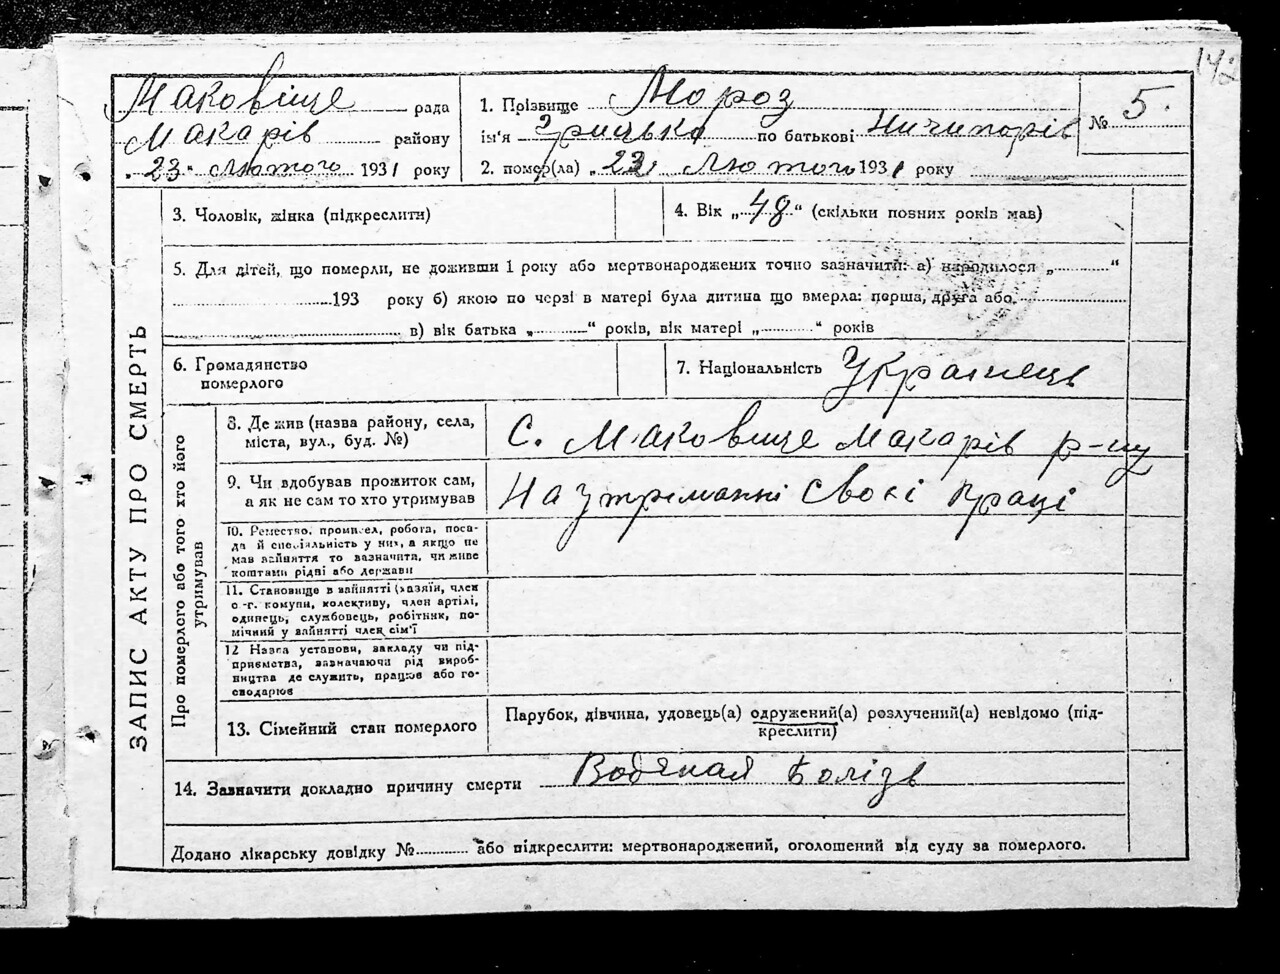 142
Маковіще рада
Макарів району
„23" лютого 1931 року
1. Прізвище Мороз
ім'я Грицько по батькові Ничипорів
2. помер(ла) „22 лютого 1931 року
№ 5.
ЗАПИС АКТУ ПРО СМЕРТЬ
3. Чоловік, жінка (підкреслити)
4. Вік „48" (скільки повних років мав)
5. Для дітей, що померли, не доживши 1 року або мертвонароджених точно зазначити: а) народилося „..........."
193 року б) якою по черзі в матері була дитина що вмерла: перша, друга або
в) вік батька „..........." років, вік матері „..........." років
6. Громадянство
померлого
7. Національність Украінець
Про померлого або того хто його
утримував
8. Де жив (назва району, села,
міста, вул., буд. №)
с. Маковище Макарів р-ну
9. Чи вдобував прожиток сам,
а як не сам то хто утримував
На утриманні своєі праці
10. Ремество, промисел, робота, поса-
да й спеціальність у них, а якщо не
мав зайняття то вазначита, чи живе
коштами рідні або держави
11. Становище в зайнятті (хазяїн, член
с.-г. комуни, колективу, член артілі,
одинець, службовець, робітник, по-
мічний у зайнятті член сім'ї
12 Назва установи, закладу чи під-
приємства, зазначаючи рід вироб-
ництва де служить, працює або го-
сподарює
13. Сімейний стан померлого
Парубок, дівчина, удовець(а) одружений(а) розлучений(а) невідомо (під-
креслити)
14. Зазначити докладно причину смерти Водяная болізь
Додано лікарську довідку №........... або підкреслити: мертвонароджений, оголошений від суду за померлого.